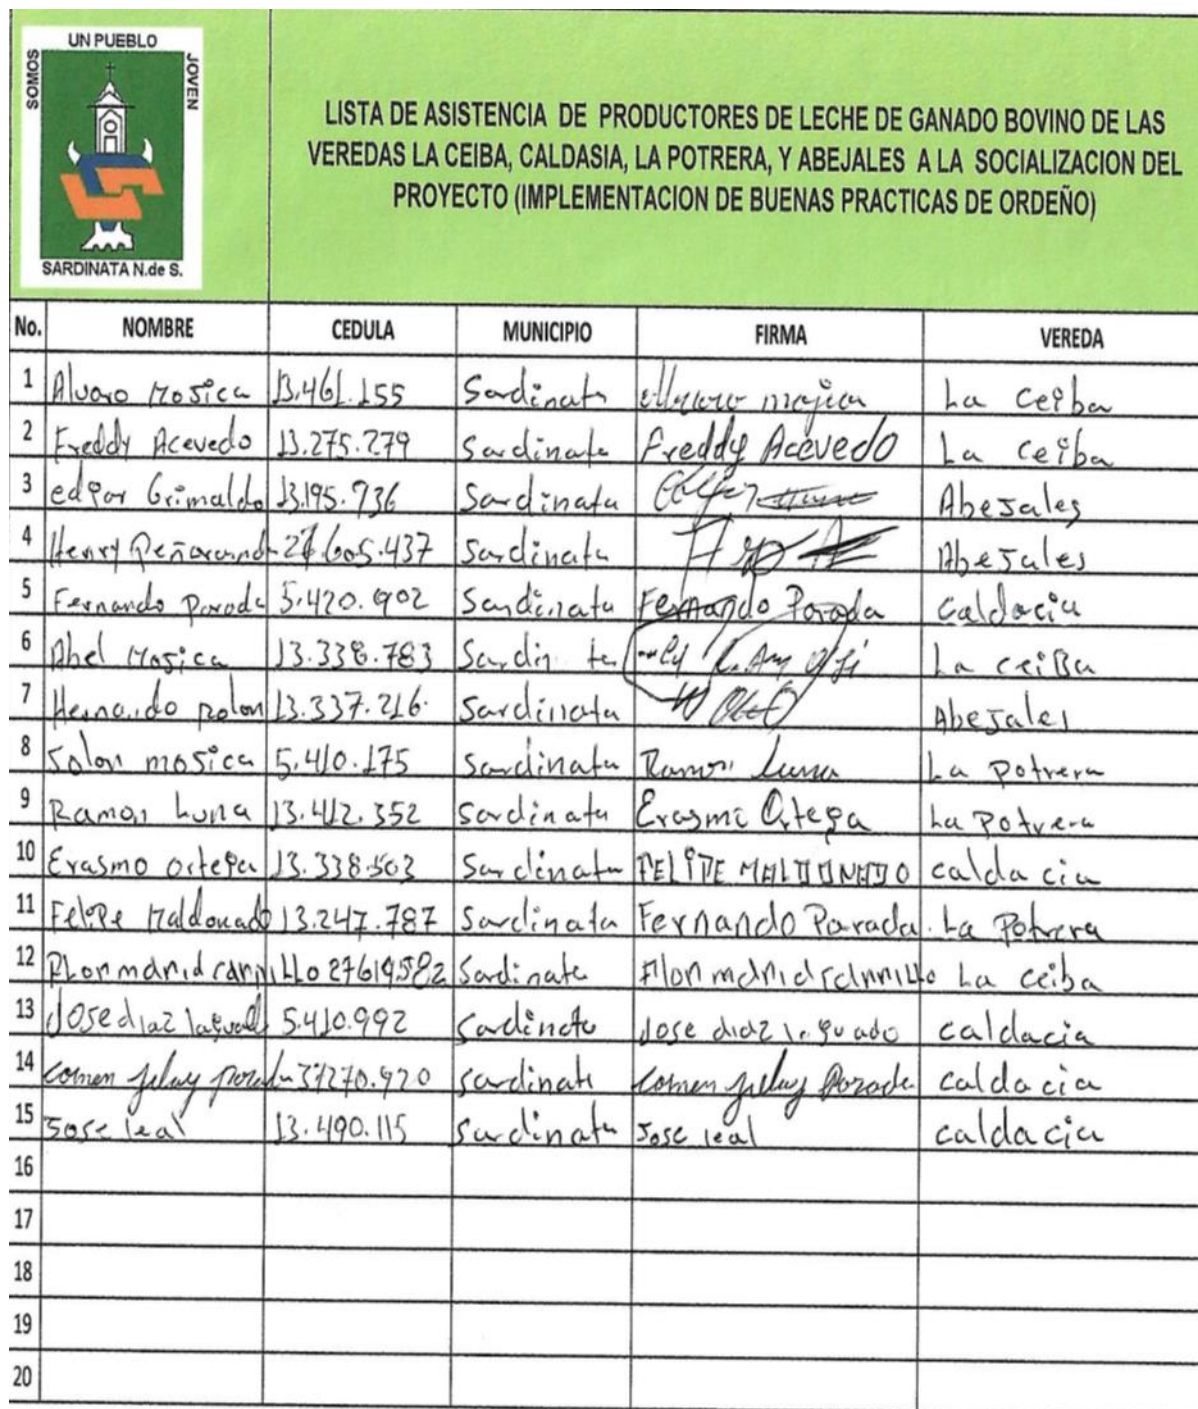 UN PUEBLO
SOMOS
JOVEN
SARDINATA N.de S.
LISTA DE ASISTENCIA DE PRODUCTORES DE LECHE DE GANADO BOVINO DE LAS
VEREDAS LA CEIBA, CALDASIA, LA POTRERA, Y ABEJALES A LA SOCIALIZACION DEL
PROYECTO (IMPLEMENTACION DE BUENAS PRACTICAS DE ORDEÑO)
No. NOMBRE CEDULA MUNICIPIO FIRMA VEREDA
1 Alvaro Mojica 13.461.155 Sardinata Alvaro mojica La Ceiba
2 Freddy Acevedo 13.275.279 Sardinata Freddy Acevedo La Ceiba
3 edgar Grimaldo 13.195.736 Sardinata Abejales
4 Henry Peñaranda Sardinata Abejales
5 Fernando Parada 5.420.902 Sardinata Fernando Parada Caldacia
6 Abel Mojica 13.338.783 La ceiBa
7 Hernando Rolon 13.337.216. Sardinata Abejales
8 Solon mojica 5.410.175 Sardinata Ramon Luna La Potrera
9 Ramon Luna 13.412.352 Sardinata Erasmo Ortega La Potrera
10 Erasmo ortega 13.338.503 Sardinata FELIPE MALDONADO caldacia
11 Felipe Maldonado 13.247.787 Sardinata Fernando Parada. La Potrera
12 Flor madrid carrillo 27619582 Sardinata Flor madrid carrillo La ceiba
13 Jose diaz laguado 5.410.992 Sardinata Jose diaz laguado caldacia
14 parada 37270.920 Sardinata Parada caldacia
15 Jose leal 13.490.115 Sardinata Jose leal caldacia
16
17
18
19
20